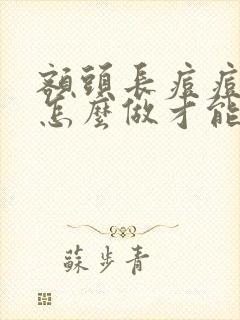 額頭長痘痘
怎麼做才能
蘇步青